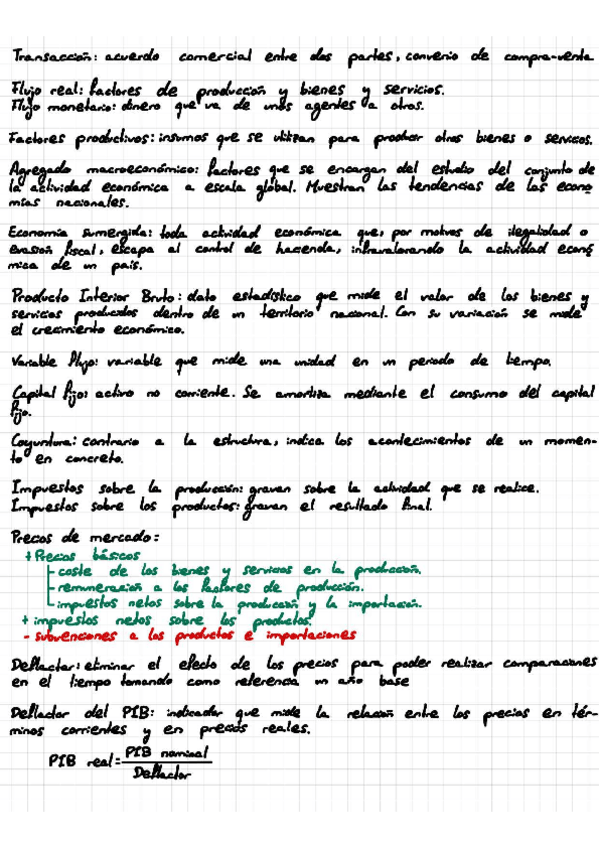 Transacción: acuerdo comercial entre dos partes, convenio de compra-venta
Flujo real: factores de producción y bienes y servicios.
Flujo monetario: dinero que va de unos agentes a otros.
Factores productivos: insumos que se utilizan para producir otros bienes o servicios.
Agregado macroeconómico: factores que se encargan del estudio del conjunto de
la actividad económica a escala global. Muestran las tendencias de las econo
mías nacionales.
Economía sumergida: toda actividad económica que, por motivos de ilegalidad o
evasión fiscal, escapa al control de hacienda, infravalorando la actividad econó
mica de un país.
Producto Interior Bruto: dato estadístico que mide el valor de los bienes y
servicios producidos dentro de un territorio nacional. Con su variación se mide
el crecimiento económico.
Variable flujo: variable que mide una unidad en un periodo de tiempo.
Capital fijo: activo no corriente. Se amortiza mediante el consumo del capital
fijo.
Coyuntura: contrario a la estructura, indica los acontecimientos de un momen-
to en concreto.
Impuestos sobre la producción: gravan sobre la actividad que se realice.
Impuestos sobre los productos: gravan el resultado final.
Precios de mercado:
+ Precios básicos
- coste de los bienes y servicios en la producción.
- remuneración a los factores de producción.
- impuestos netos sobre la producción y la importación.
+ impuestos netos sobre los productos.
- subvenciones a los productos e importaciones
Deflactar: eliminar el efecto de los precios para poder realizar comparaciones
en el tiempo tomando como referencia un año base
Deflactor del PIB: indicador que mide la relación entre los precios en tér-
minos corrientes y en precios reales.
PIB real = PIB nominal
Deflactor